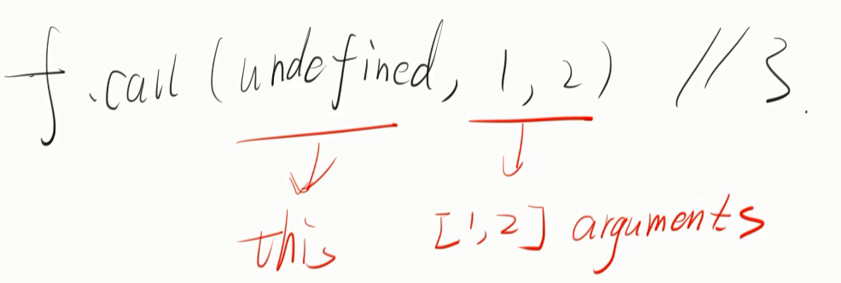 f.call(undefined, 1, 2) // 3.
this [1,2] arguments